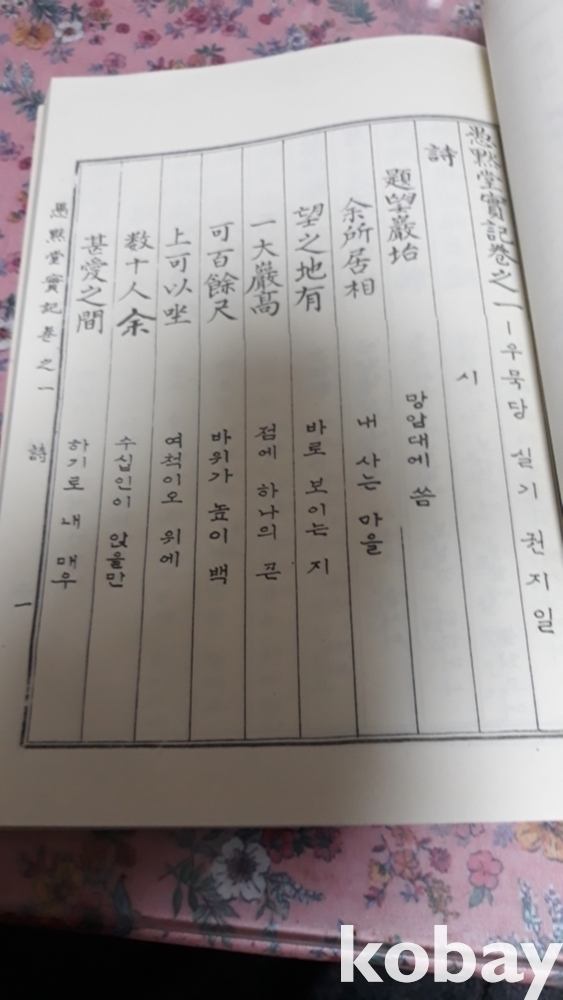 愚黙堂實記卷之一 - 우묵당 실기 권지일
詩 시
題望巖坮 망암대에 씀
余所居相 내 사는 마을
望之地有 바로 보이는 지
一大巖高 점에 하나의 큰
可百餘尺 바위가 높이 백
上可以坐 여척이오 위에
数十人余 수십인이 앉을만
甚愛之間 하기로 내 매우
愚黙堂實記卷之一 詩 一
kobay